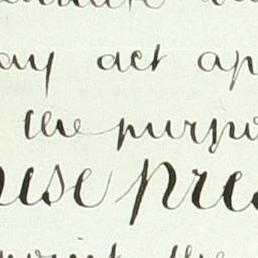 ay act ap
the purpo
use pre
the